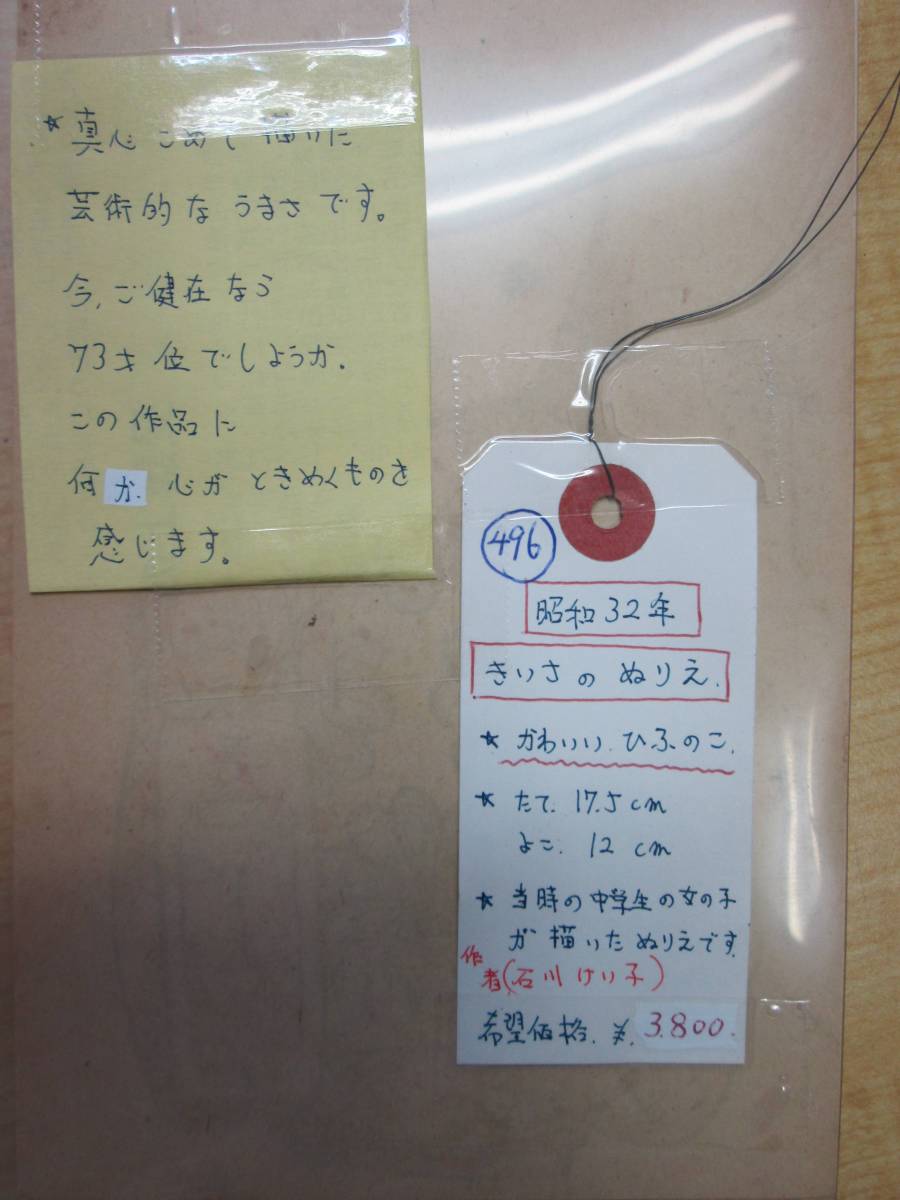 ★ 真心こめて描いた
芸術的なうまさです。
今,ご健在なら
73才位でしょうか.
この作品に
何か.心がときめくものを
感じます。
496
昭和32年
きいさのぬりえ.
★ かわいい.ひふのこ.
★ たて.17.5cm
よこ.12cm
★ 当時の中学生の女の子
が描いたぬりえです.
作者(石川けい子)
希望価格.¥.3.800.